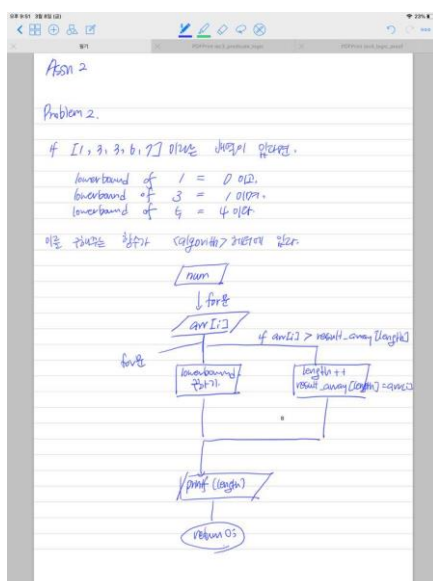 오후 9:51 3월 8일 (금)
23%
필기
Assn 2
Problem 2.
if [1, 3, 3, 6, 7] 이라는 배열이 있다면.
lowerbound of 1 = 0 이고.
lowerbound of 3 = 1 이며.
lowerbound of 5 = 4 이다.
이를 구해주는 함수가 <algorithm> 헤더에 있다.
num
↓ for문
arr[i]
if arr[i] > result_array[length]
for문
lowerbound
구하기.
length++
result_array[length] = arr[i]
printf (length)
return 0;